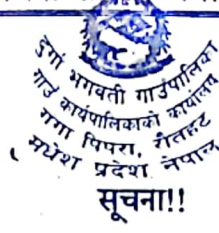 दुर्गा भगवती गाउँपालिका
गाउँ कार्यपालिकाको कार्यालय
गंगा पिपरा, रौतहट
मधेश प्रदेश, नेपाल
सूचना!!